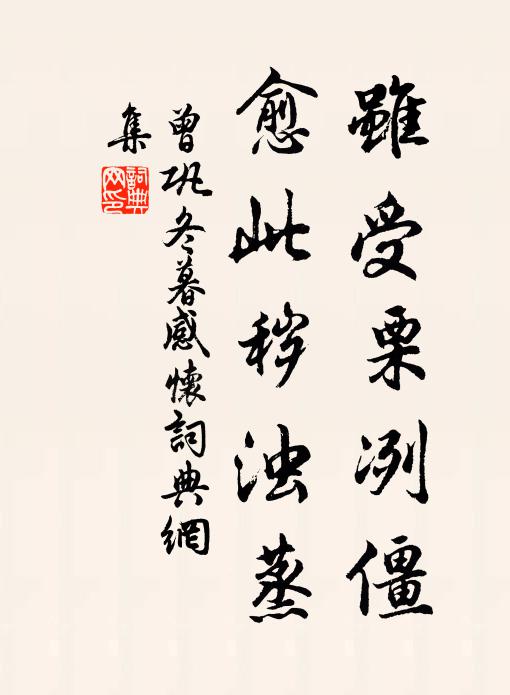 雖受栗冽僵
愈此秽浊蒸
曾巩冬暮感懷詞典網
集
詞典網印